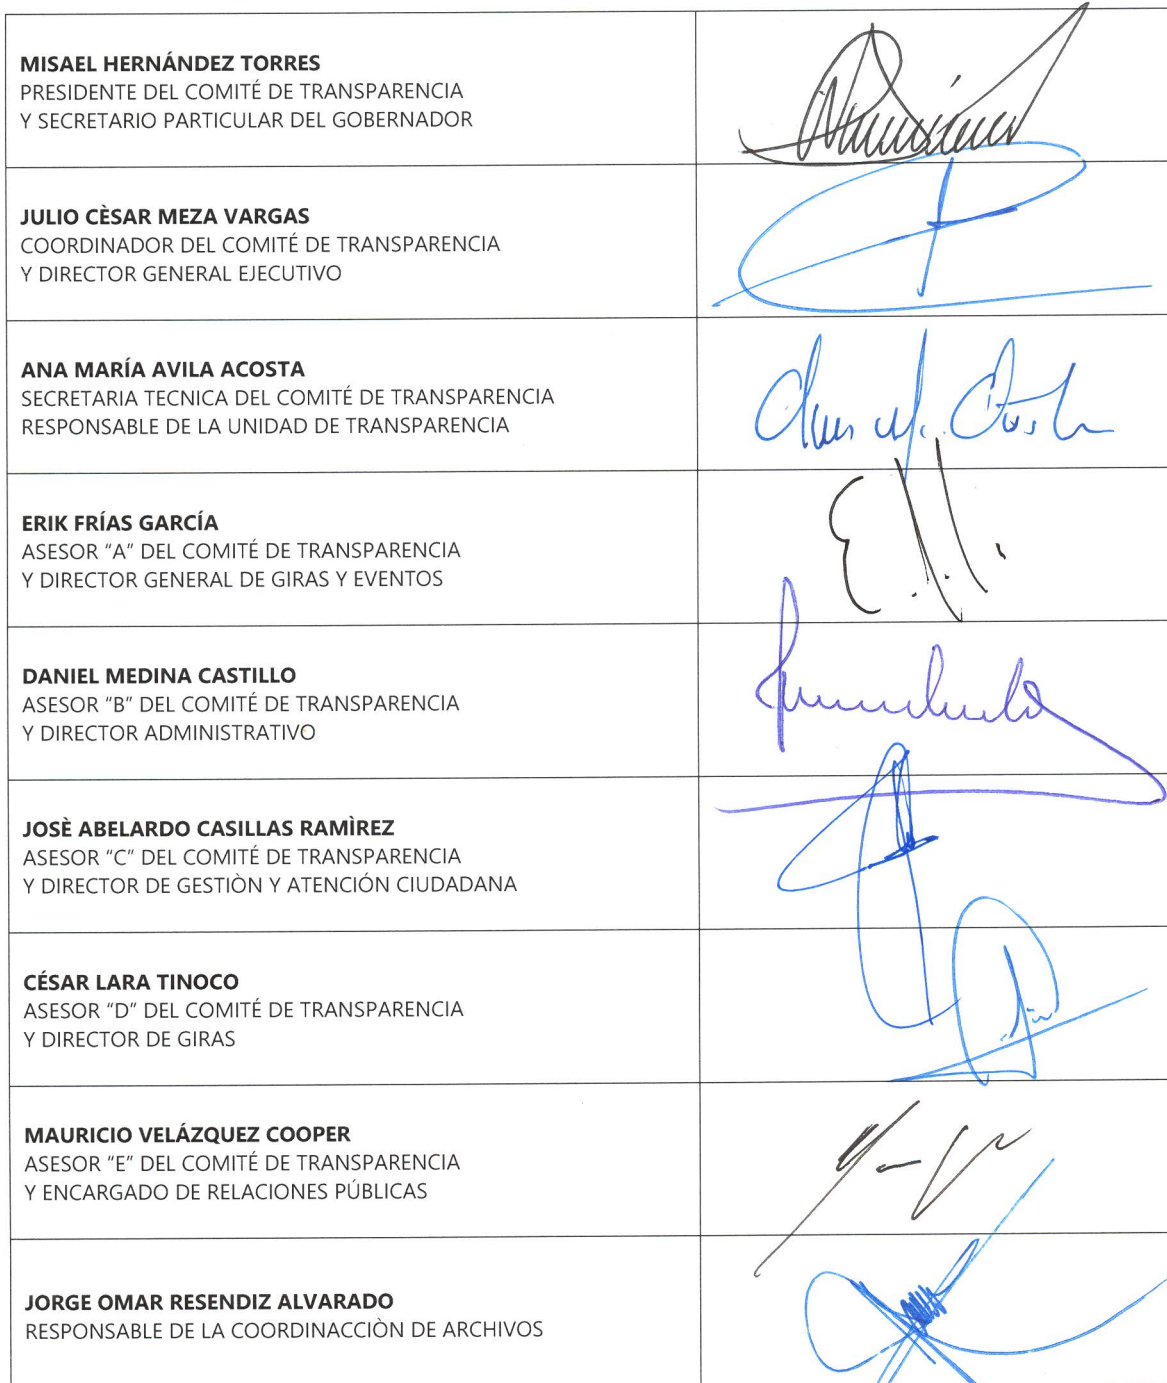 MISAEL HERNÁNDEZ TORRES
PRESIDENTE DEL COMITÉ DE TRANSPARENCIA
Y SECRETARIO PARTICULAR DEL GOBERNADOR
JULIO CÈSAR MEZA VARGAS
COORDINADOR DEL COMITÉ DE TRANSPARENCIA
Y DIRECTOR GENERAL EJECUTIVO
ANA MARÍA AVILA ACOSTA
SECRETARIA TECNICA DEL COMITÉ DE TRANSPARENCIA
RESPONSABLE DE LA UNIDAD DE TRANSPARENCIA
ERIK FRÍAS GARCÍA
ASESOR “A” DEL COMITÉ DE TRANSPARENCIA
Y DIRECTOR GENERAL DE GIRAS Y EVENTOS
DANIEL MEDINA CASTILLO
ASESOR “B” DEL COMITÉ DE TRANSPARENCIA
Y DIRECTOR ADMINISTRATIVO
JOSÈ ABELARDO CASILLAS RAMÌREZ
ASESOR “C” DEL COMITÉ DE TRANSPARENCIA
Y DIRECTOR DE GESTIÒN Y ATENCIÓN CIUDADANA
CÉSAR LARA TINOCO
ASESOR “D” DEL COMITÉ DE TRANSPARENCIA
Y DIRECTOR DE GIRAS
MAURICIO VELÁZQUEZ COOPER
ASESOR “E” DEL COMITÉ DE TRANSPARENCIA
Y ENCARGADO DE RELACIONES PÚBLICAS
JORGE OMAR RESENDIZ ALVARADO
RESPONSABLE DE LA COORDINACCIÒN DE ARCHIVOS